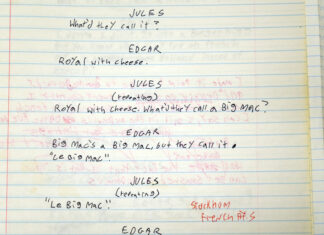 JULES
What'd they call it?
EDGAR
Royal with cheese.
JULES
(repeating)
Royal with cheese. What'd they call a Big Mac?
EDGAR
Big Mac's a Big Mac, but they call it
"Le Big Mac".
JULES
(repeating)
"Le Big Mac".
Stockholm
French
EDGAR